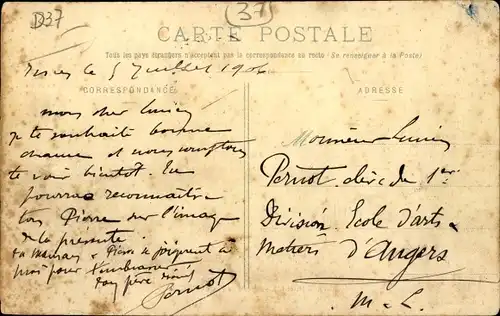 D37
37
CARTE POSTALE
Tous les pays étrangers n'acceptent pas la correspondance au recto (Se renseigner à la Poste)
le 5 Juillet 190
CORRESPONDANCE
ADRESSE
mon cher Lucien
je te souhaite bonne
chance et nous comptons
te voir bientôt. Tu
pourras reconnaître
ton Pierre sur l'image
de la présente.
ta maman & Pierre se joignent à
moi pour t'embrasser
ton père
Pernot
Monsieur Lucien
Pernot, élève de 1ère
Division. Ecole d'arts &
Métiers d'Angers
M.-L.